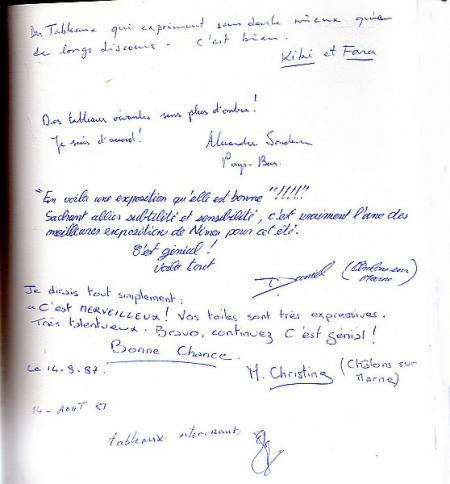 Des Tableaux qui expriment sans doute mieux qu'en
de longs discours - C'est bien.
Kiki et Fara
Des tableaux vivantes sans plus d'ombre!
Je suis d'accord!
Alexandre
Pays-Bas.
"En voilà une exposition qu'elle est bonne "!!!!"
Sachant allier subtilité et sensibilité, c'est vraiment l'une des
meilleures expositions de Nîmes pour cet été.
C'est génial!
Voilà tout
Daniel (Châlons sur
Marne)
Je dirais tout simplement:
"C'est MERVEILLEUX! Vos toiles sont très expressives.
Très talentueux. Bravo, continuez C'est génial!
Bonne Chance.
Le 14.8.87.
M. Christine (Châlons sur
Marne)
14 - AOUT 87
tableaux intéressants